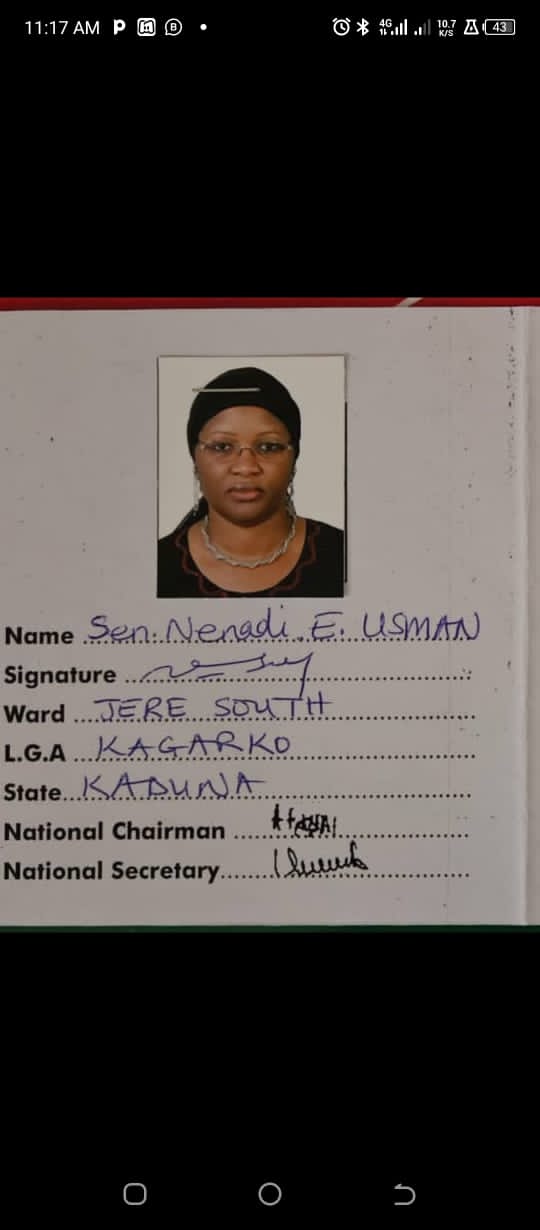 11:17 AM
4G
10.7
K/S
43
Name Sen. Nenadi. E. USMAN
Signature
Ward JERE SOUTH
L.G.A KAGARKO
State KADUNA
National Chairman
National Secretary